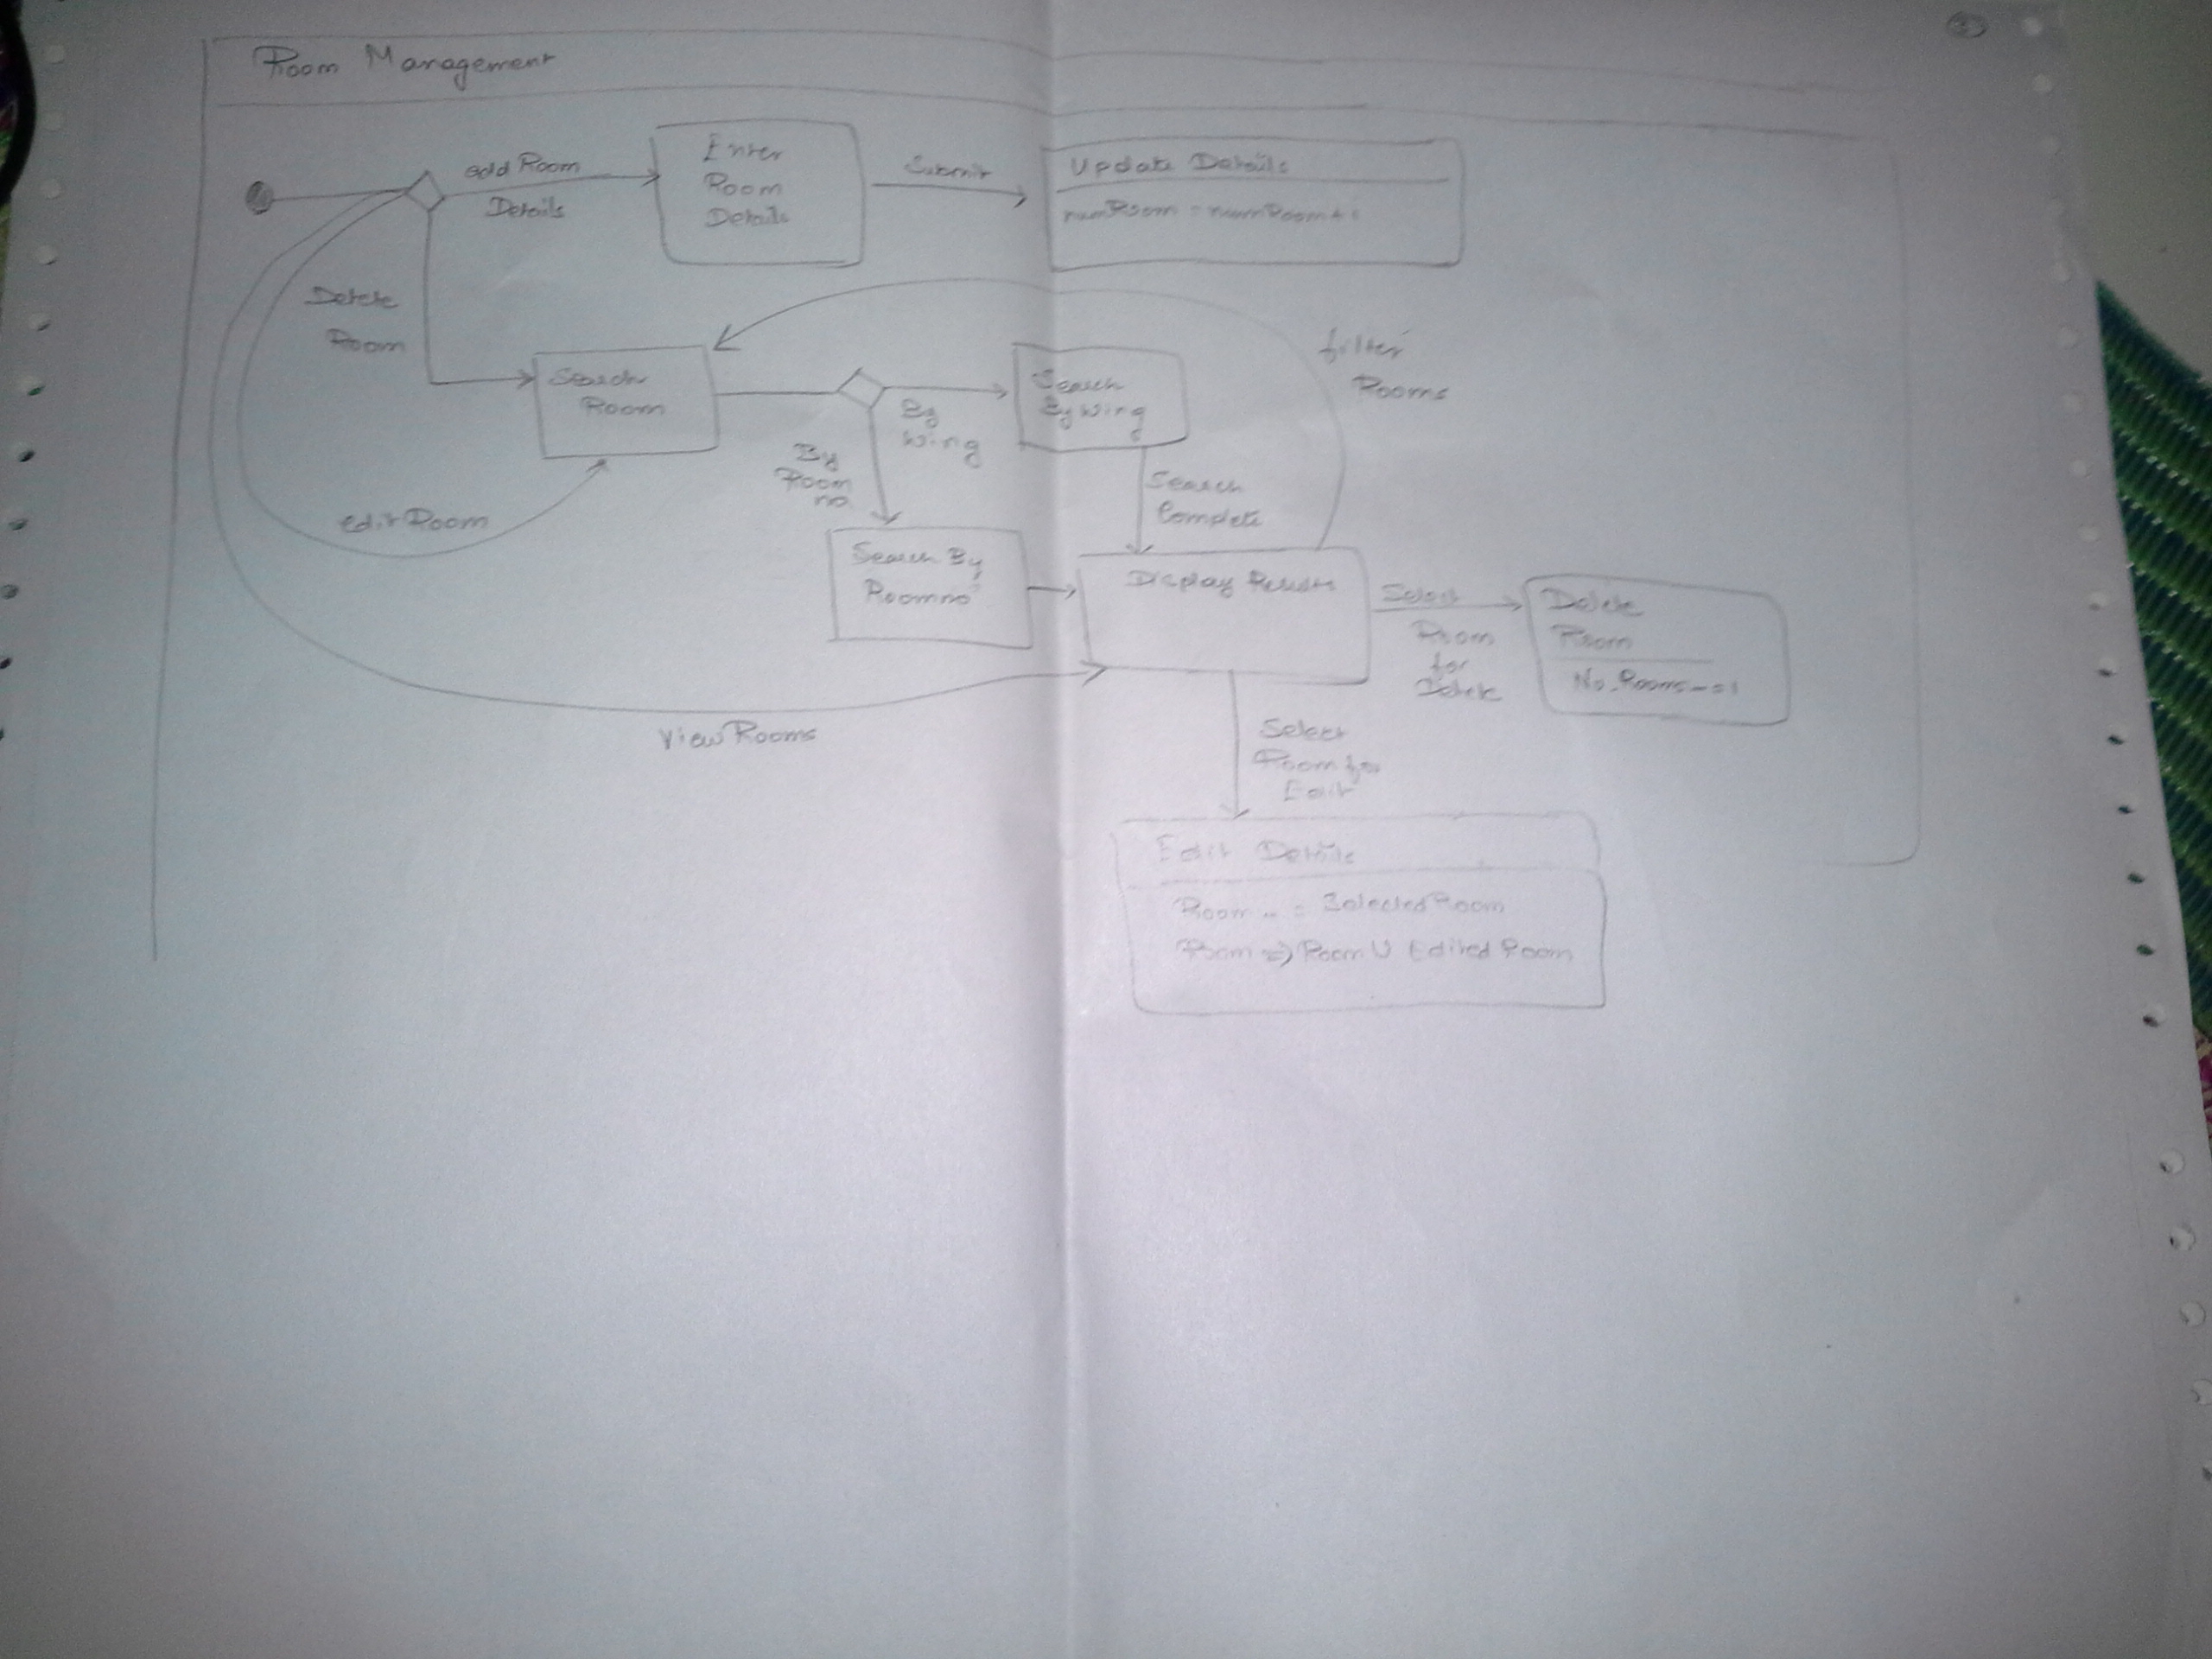 Room Management
add Room
Details
Enter
Room
Details
Submit
Update Details
numRoom = numRoom + 1
Delete
Room
Search
Room
By
Wing
By
Room
no
Search
By Wing
filter
Rooms
Search
Complete
edit Room
Search By
Roomno
Display Results
Select
Room
for
Delete
Delete
Room
No. Rooms -= 1
View Rooms
Select
Room for
Edit
Edit Details
Room -= Selected Room
Room => Room U Edited Room